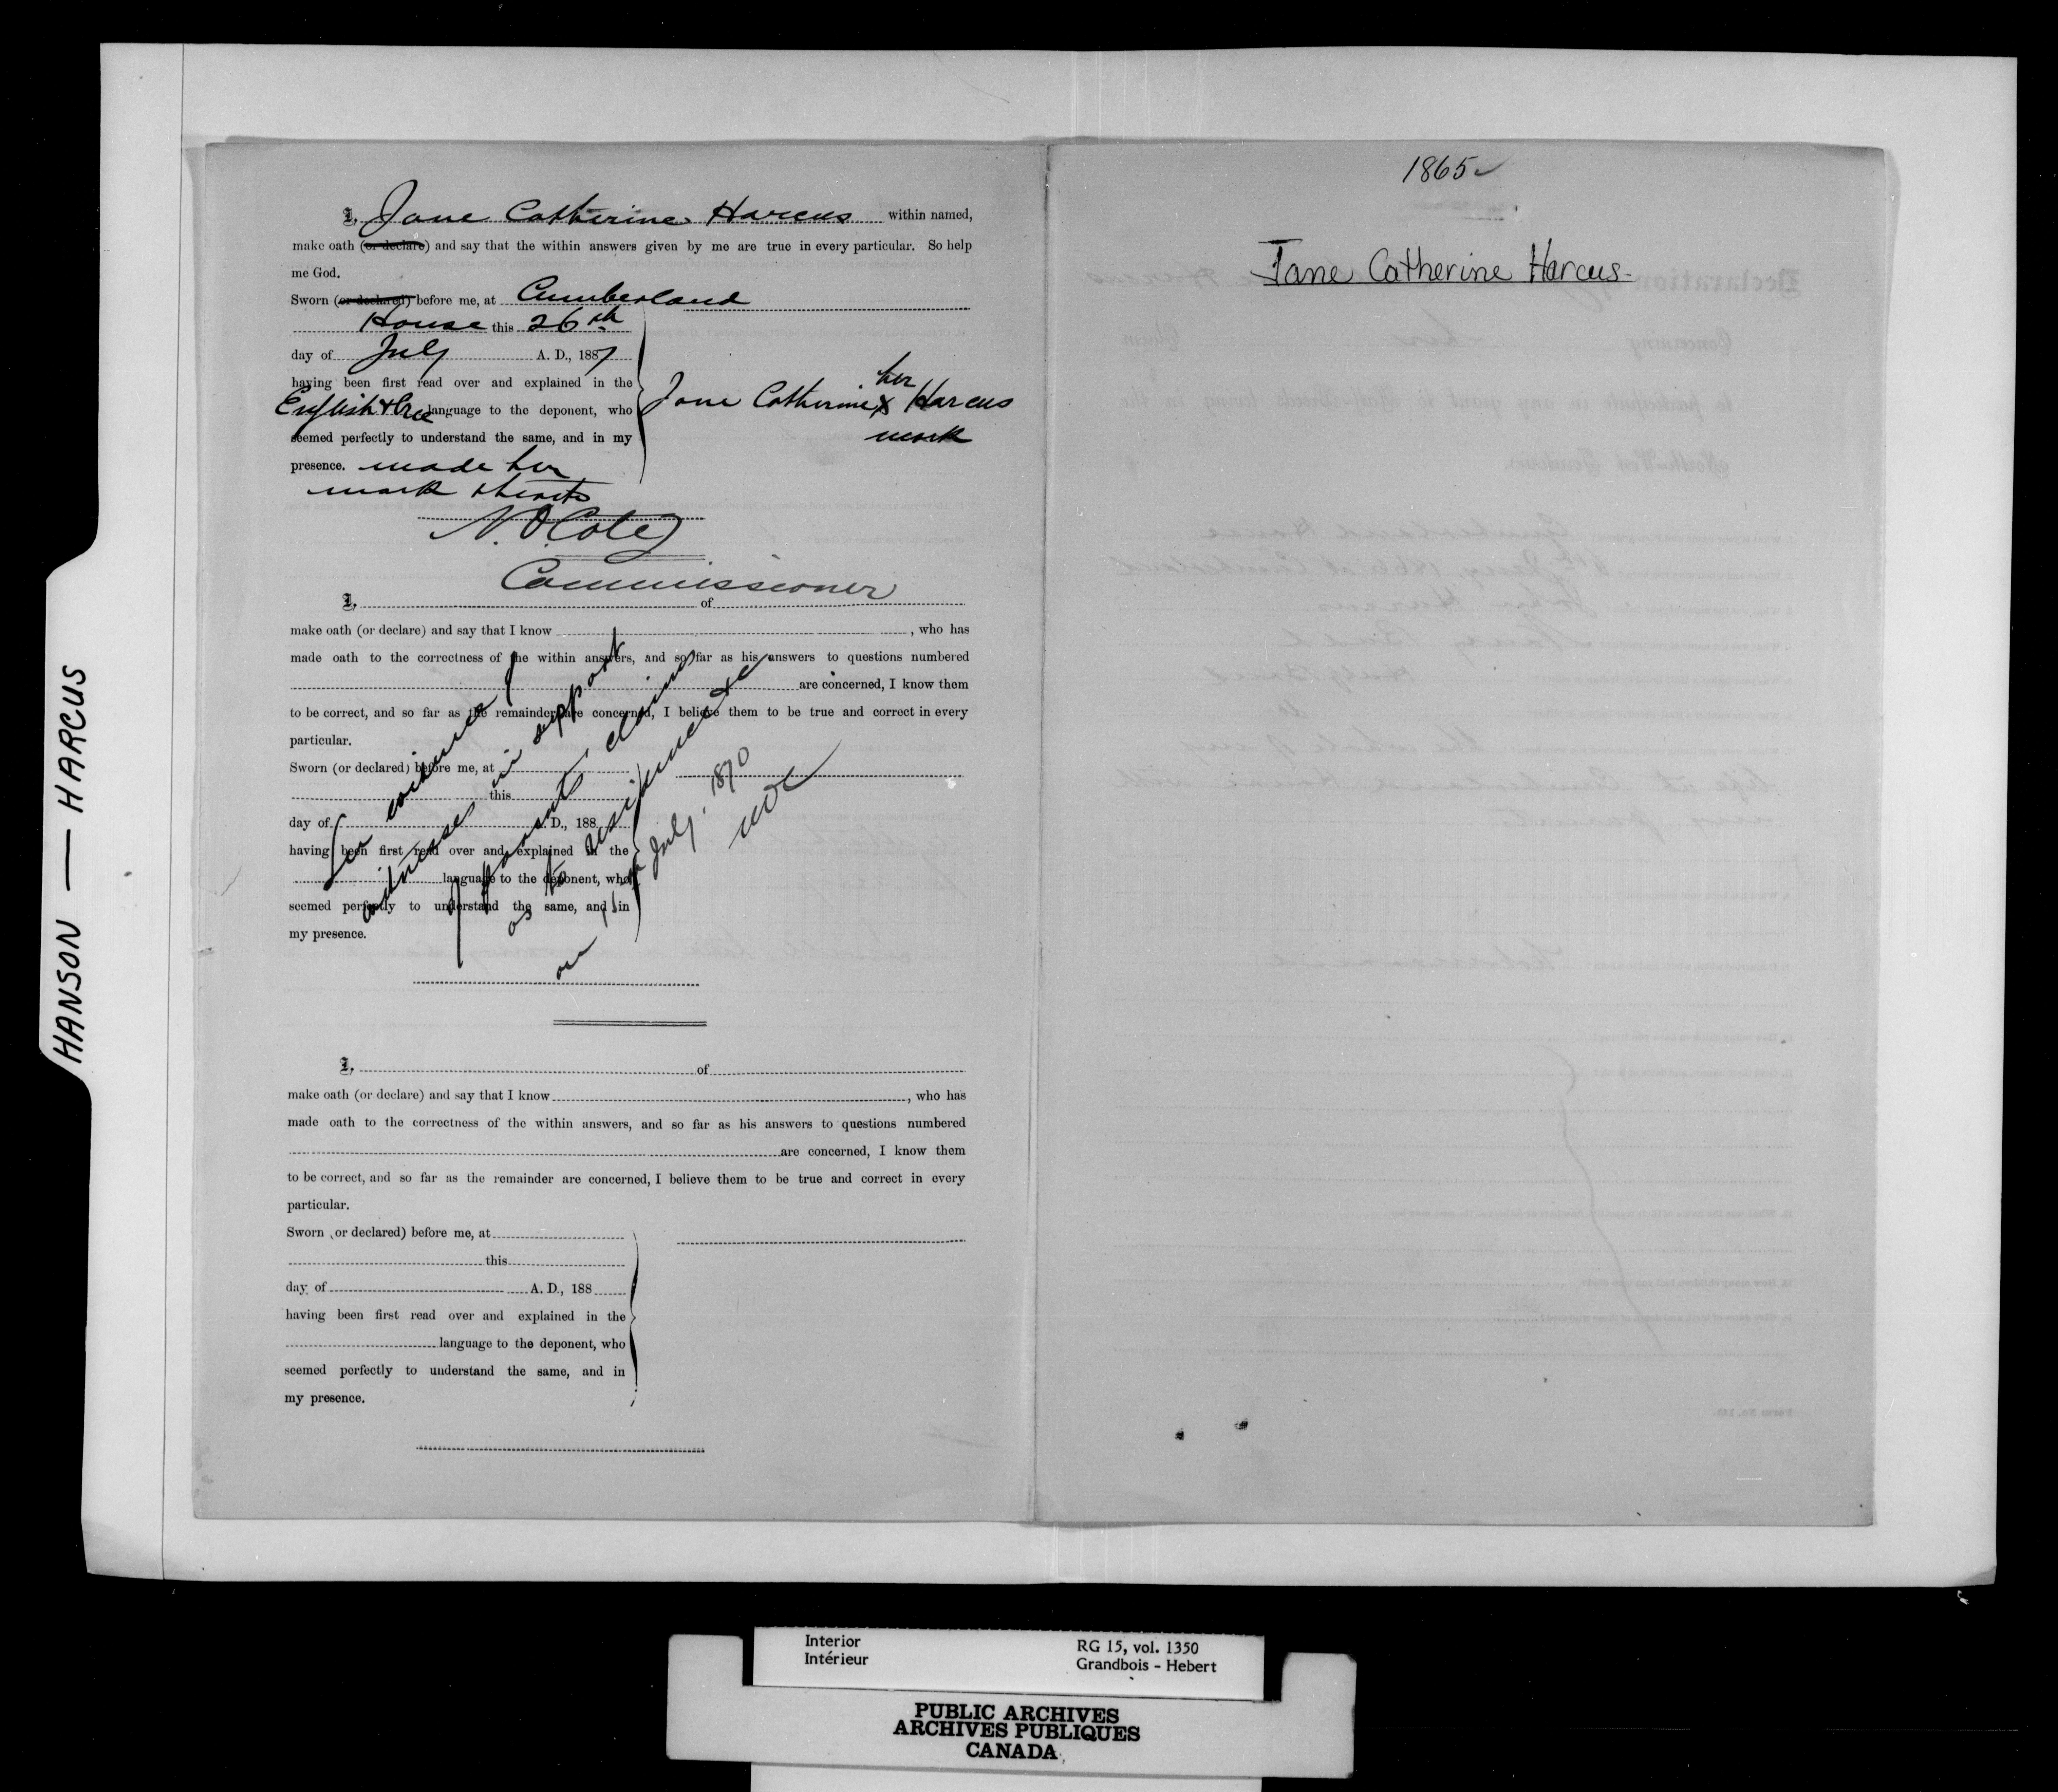 I, Jane Catherine Harcus within named,
make oath (or declare) and say that the within answers given by me are true in every particular. So help
me God.
Sworn (or declared) before me, at Cumberland
House this 26th
day of July A. D., 1887
having been first read over and explained in the
English & Cree language to the deponent, who
seemed perfectly to understand the same, and in my
presence. made her
mark thereto
her
Jane Catherine X Harcus
mark
N. O. Coté
Commissioner
I, of
make oath (or declare) and say that I know , who has
made oath to the correctness of the within answers, and so far as his answers to questions numbered
are concerned, I know them
to be correct, and so far as the remainder are concerned, I believe them to be true and correct in every
particular.
Sworn (or declared) before me, at
this
day of A. D., 188
having been first read over and explained in the
language to the deponent, who
seemed perfectly to understand the same, and in
my presence.
See evidence of
witnesses in support
of parents claims
as to residence &c
on 15th July, 1870
NOC
I, of
make oath (or declare) and say that I know , who has
made oath to the correctness of the within answers, and so far as his answers to questions numbered
are concerned, I know them
to be correct, and so far as the remainder are concerned, I believe them to be true and correct in every
particular.
Sworn (or declared) before me, at
this
day of A. D., 188
having been first read over and explained in the
language to the deponent, who
seemed perfectly to understand the same, and in
my presence.
1865
Jane Catherine Harcus
HANSON — HARCUS
Interior
Intérieur
RG 15, vol. 1350
Grandbois - Hebert
PUBLIC ARCHIVES
ARCHIVES PUBLIQUES
CANADA